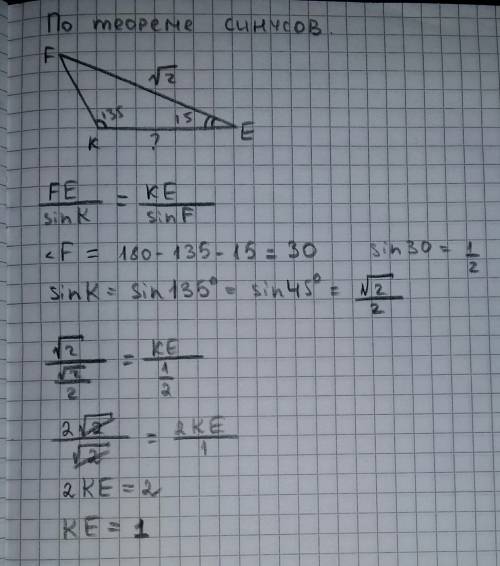 По теореме синусов.
F
√2
135
15
K
?
E
FE/sinK = KE/sinF
<F = 180-135-15=30 sin30=1/2
sinK = sin135° = sin45° = √2/2
√2/(√2/2) = KE/(1/2)
2√2/√2 = 2KE/1
2KE=2
KE=1